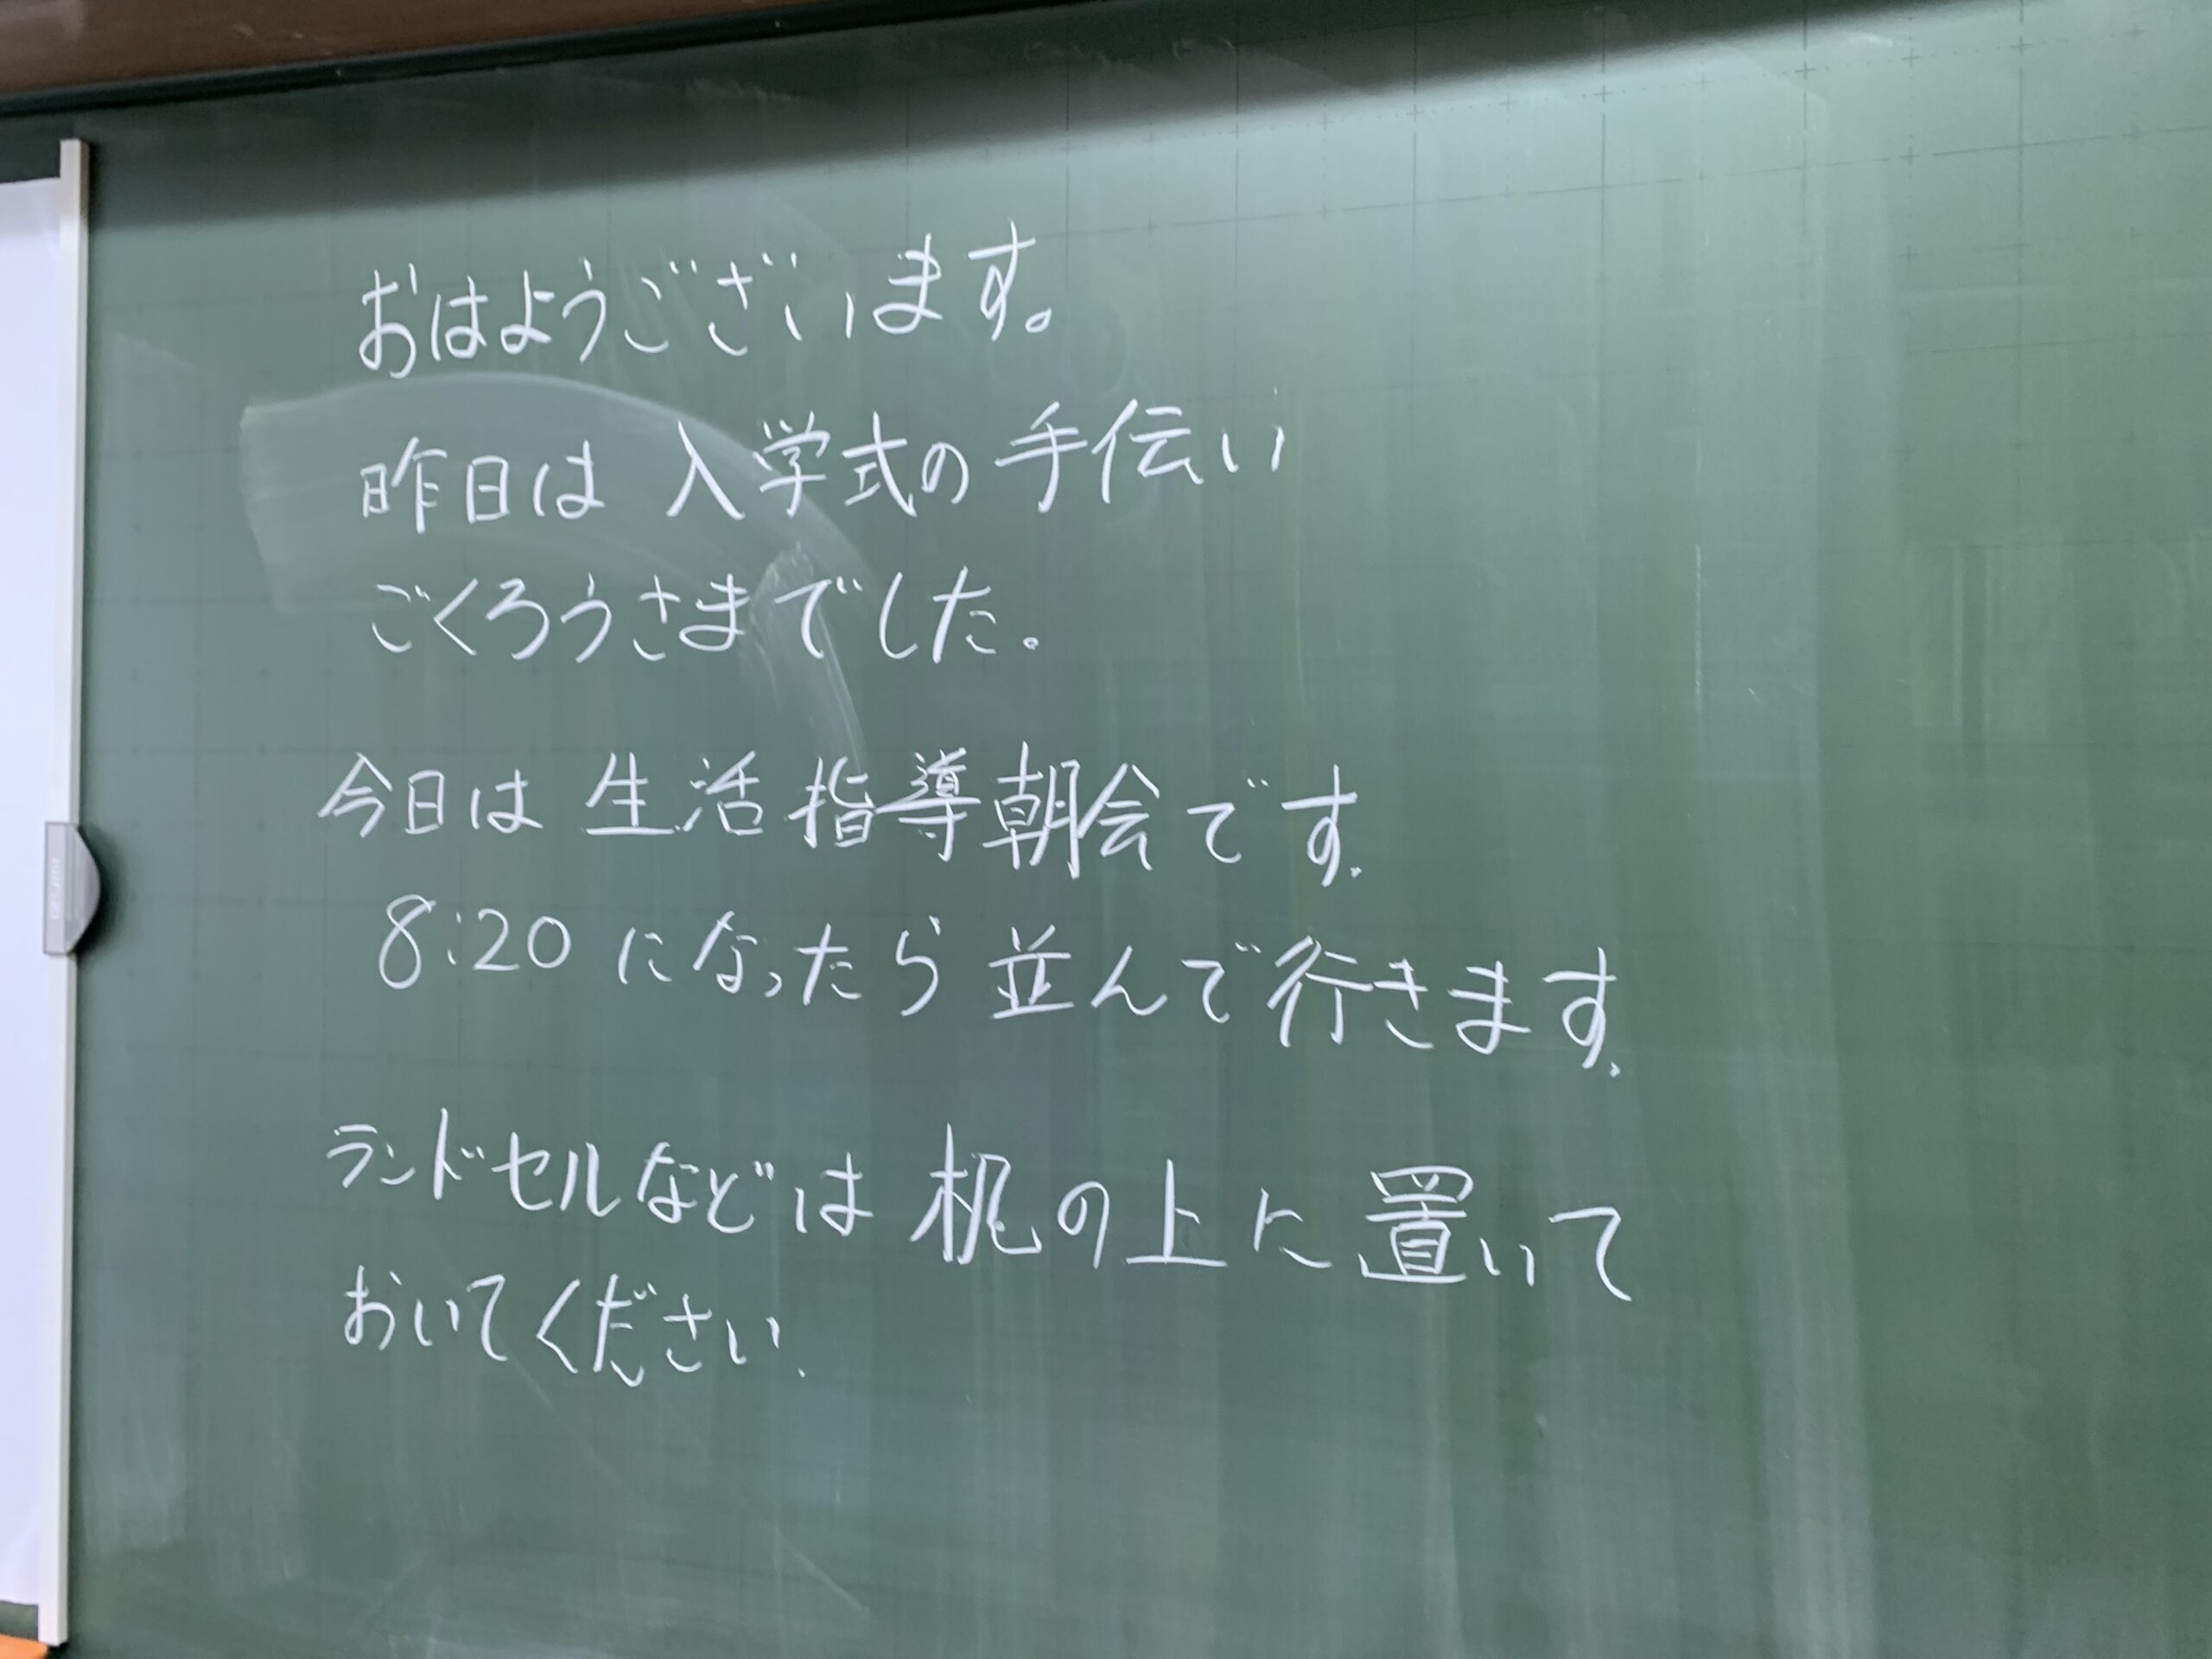 おはようございます。
昨日は入学式の手伝い
ごくろうさまでした。
今日は生活指導朝会です.
8:20になったら並んで行きます.
ランドセルなどは机の上に置いて
おいてください.